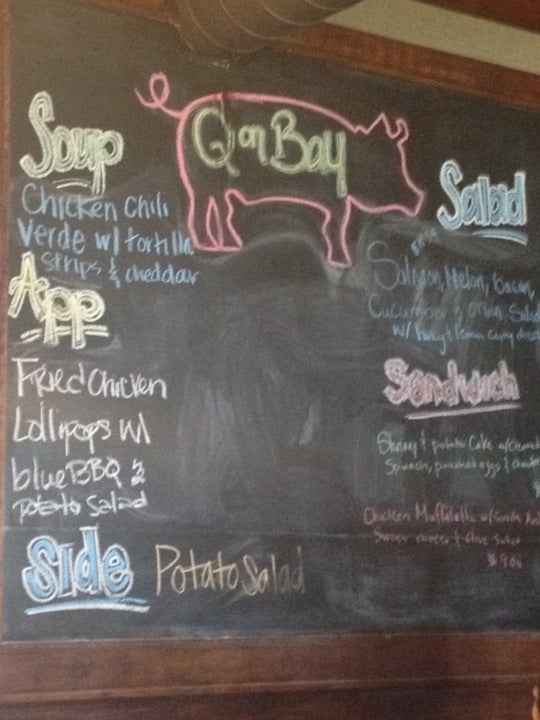 Q on Bay
Soup
Chicken Chili
Verde w/ tortilla
strips & cheddar
App
Fried Chicken
Lollipops w/
blue BBQ &
potato Salad
Side
Potato Salad
Salad
Salmon, Melon, bacon,
Cucumber & onion Salad
w/
Sandwich
Shrimp & potato Cake w/ Creamed
Spinach, poached eggs &
Chicken Muffeletta w/
Swiss cheese & Olive Salad
$ 9.00